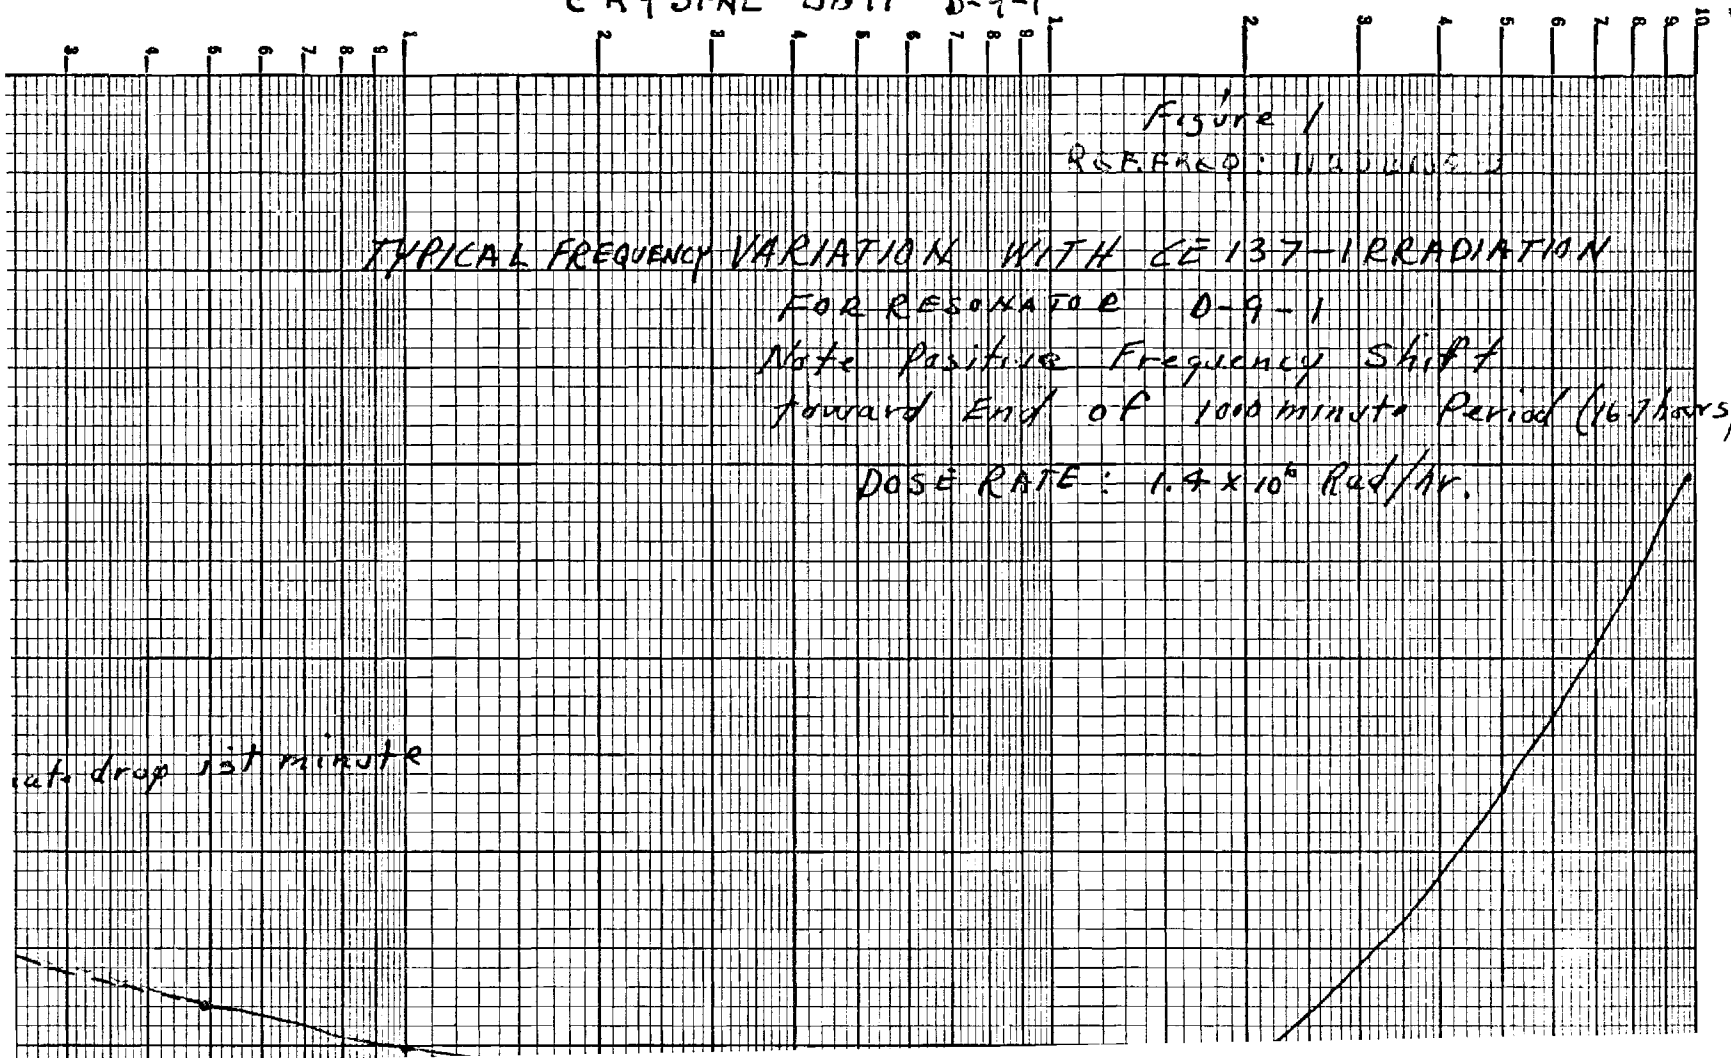 CRYSTAL D-9-1
3 4 5 6 7 8 9 1 2 3 4 5 6 7 8 9 1 2 3 4 5 6 7 8 9 10
Figure 1
REF. FREQ:
TYPICAL FREQUENCY VARIATION WITH CE 137-IRRADIATION
FOR RESONATOR D-9-1
Note Positive Frequency Shift
toward End of 1000 minute Period (16.7 hours)
DOSE RATE: 1.4 x 10⁶ Rad/hr.
drop 1st minute